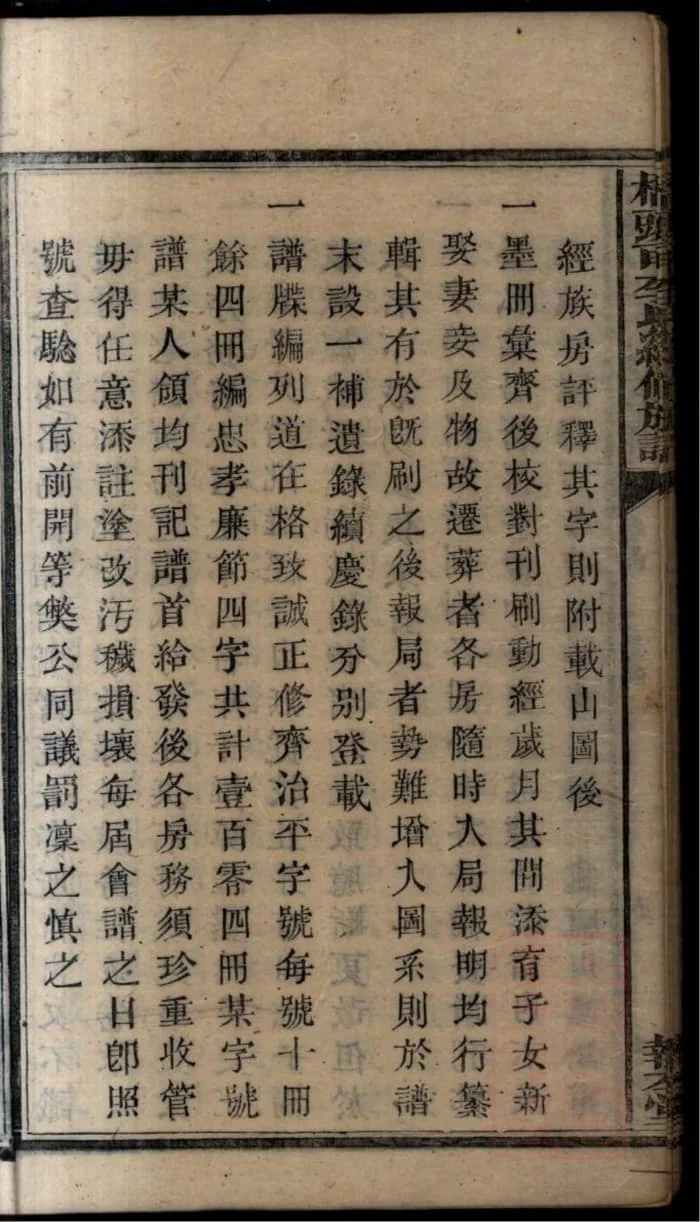 經族房評釋其字則附載山圖後
一墨冊彙齊後核對刊刷動經歲月其間添育子女新
娶妻妾及物故遷葬者各房隨時入局報明均行纂
輯其有於旣刷之後報局者勢難增入圖系則於譜
末設一補遺錄續慶錄分別登載
一譜牒編列道在格致誠正修齊治平字號每號十冊
餘四冊編忠孝廉節四字共計壹百零四冊某字號
譜某人領均刊記譜首給發後各房務須珍重收管
毋得任意添註塗改汚穢損壞每屆會譜之日卽照
號查騐如有前開等獘公同議罰凜之愼之